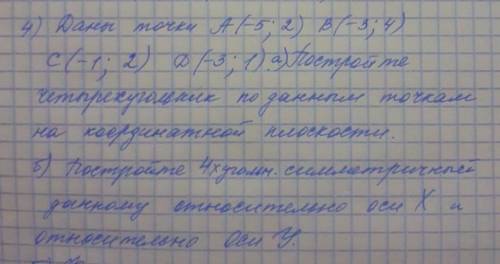 4) Даны точки А(-5; 2) В(-3; 4)
С(-1; 2) D(-3; 1) а) Постройте
четырехугольник по данным точкам
на координатной плоскости.
б) Постройте 4хугольн. симметричный
данному относительно оси X и
относительно оси У.